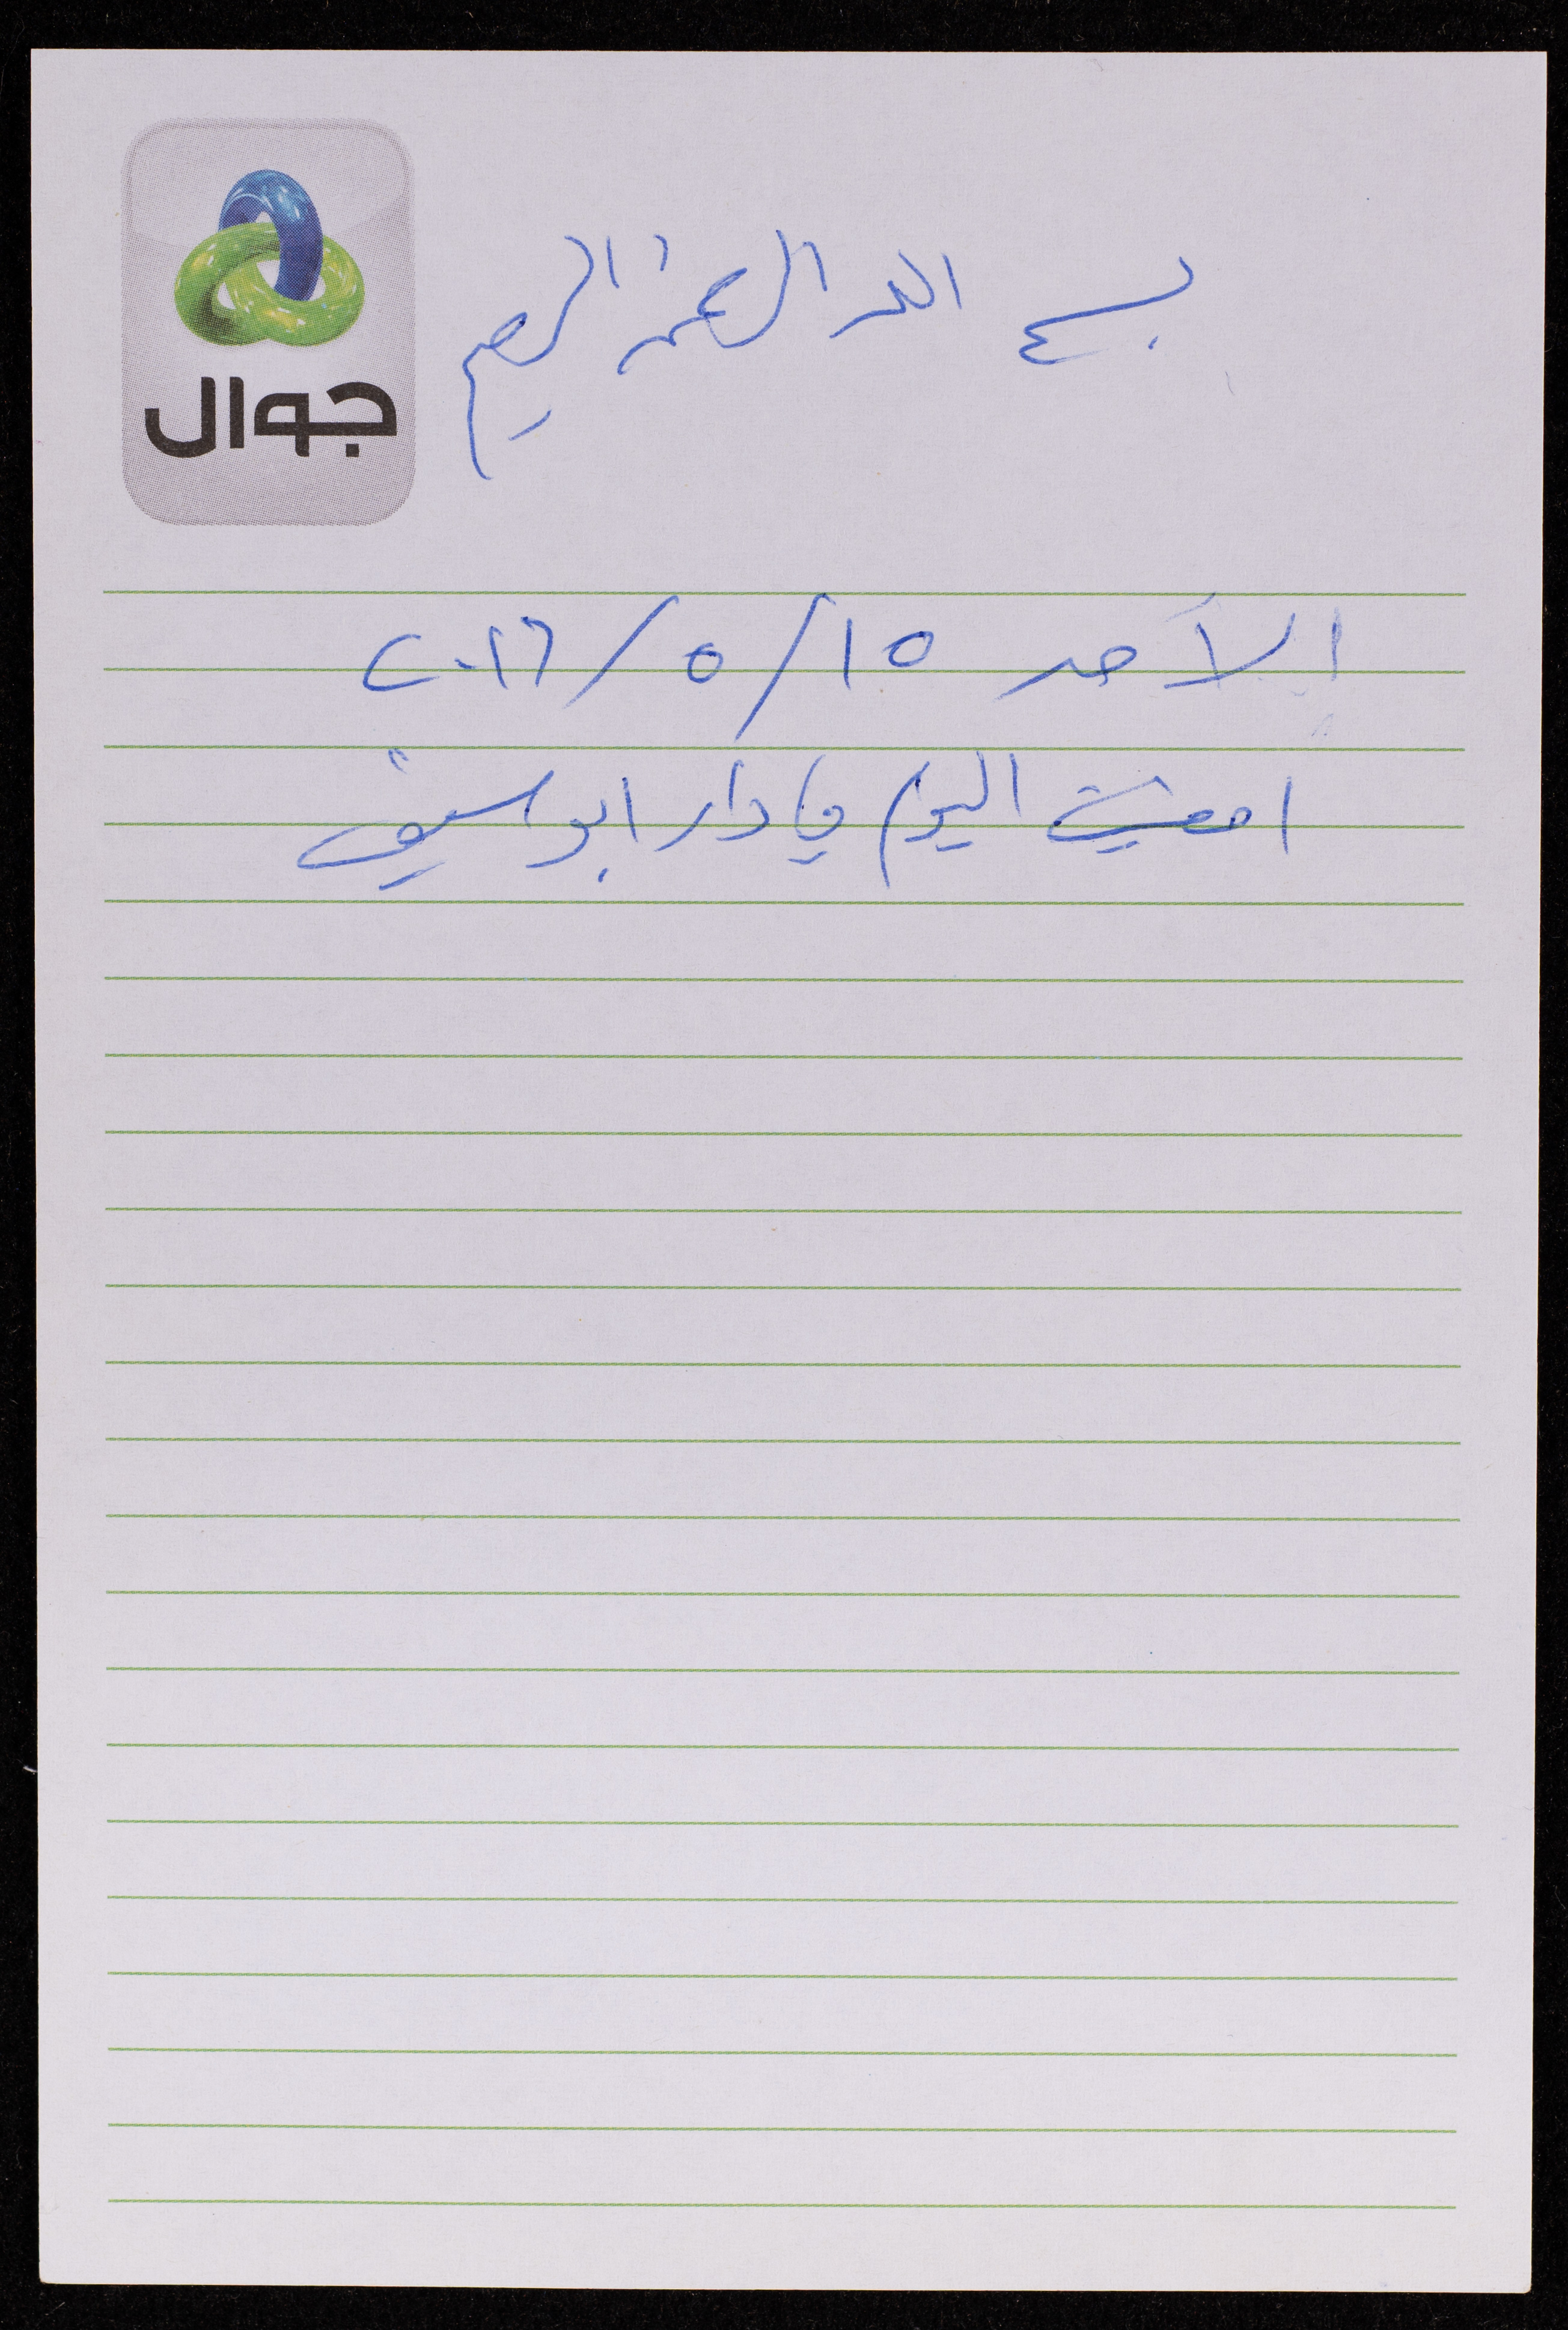 جوال
بسم الله الرحمن الرحيم
الأحد ١٥/٥/٢٠١٦
امضيت اليوم في دار ابو اسيف